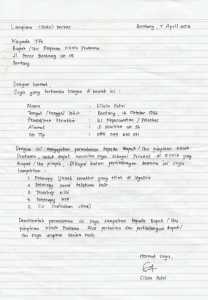 Lampiran : 1 (satu) berkas Bontang, 7 April 2016
Kepada Yth.
Bapak / Ibu Pimpinan Klinik Pratama
Jl. Pasar Bontang no. 09
Bontang
Dengan hormat,
Saya yang bertanda tangan di bawah ini :
Nama : Elivia Putri
Tempat / tanggal lahir : Bontang, 16 Oktober 1996
Pendidikan terakhir : S1 Keperawatan / Pelastas
Alamat : Jl. no 56
No. Tlp : 085
Dengan ini mengajukan permohonan kepada Bapak / Ibu pimpinan Klinik
Pratama, untuk dapat menerima saya sebagai Perawat di Klinik yang
Bapak / Ibu pimpin. Sebagai bahan pertimbangan bersama ini saya
lampirkan :
1. Fotocopy Ijazah terakhir yang telah di legalisir
2. Fotocopy surat kelakuan baik
3. Transkip nilai
4. Fotocopy KTP
5. CV (curiculum vitae)
Demikianlah permohonan ini saya sampaikan kepada Bapak / Ibu
pimpinan Klinik Pratama. Atas perhatian dan pertimbangan Bapak /
Ibu saya ucapkan terima kasih.
Hormat saya,
Elivia Putri